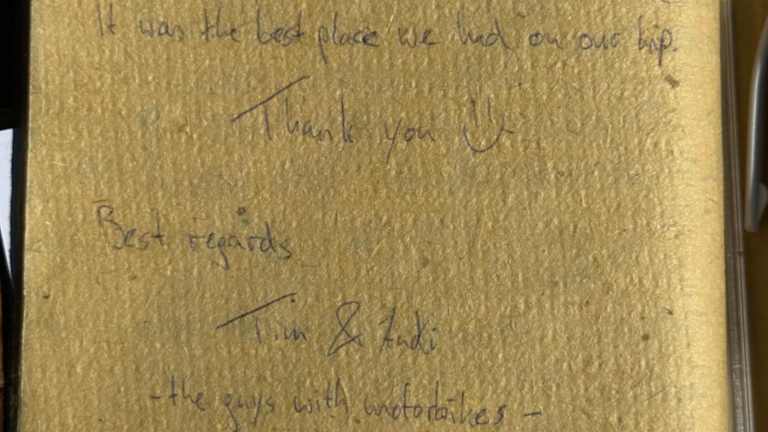 It was the best place we had on our trip.
Thank you :)
Best regards
Tim & Andi
- the guys with motorbikes -